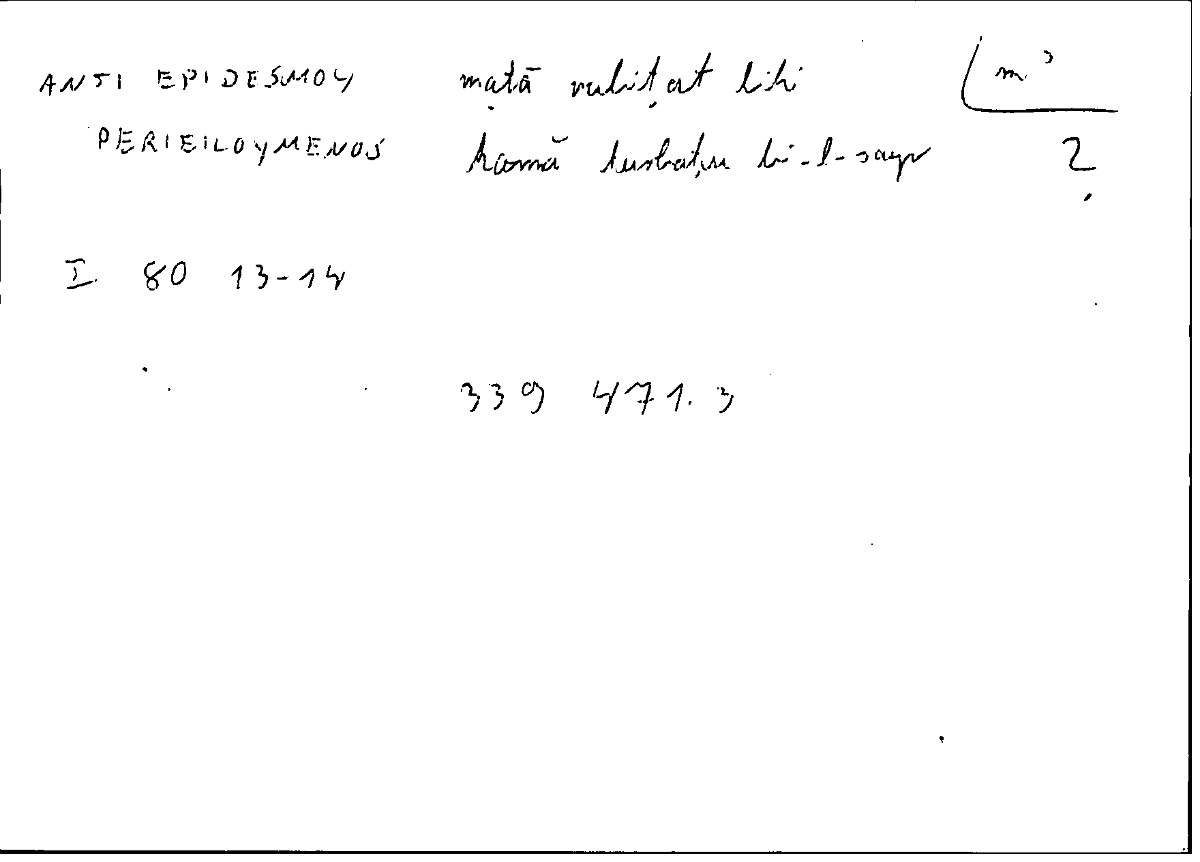 ANTI EPIDESMOY matā rubiṭat bihi m³
PERIEILOYMENOS kamā turbaṭu bi-l-sayr 2
I. 80 13-14
339 471.3